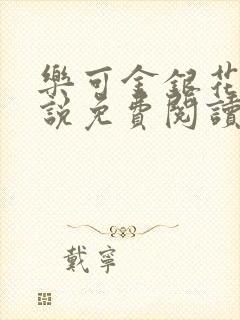 樂可金銀花
說免費閱讀
戴寧